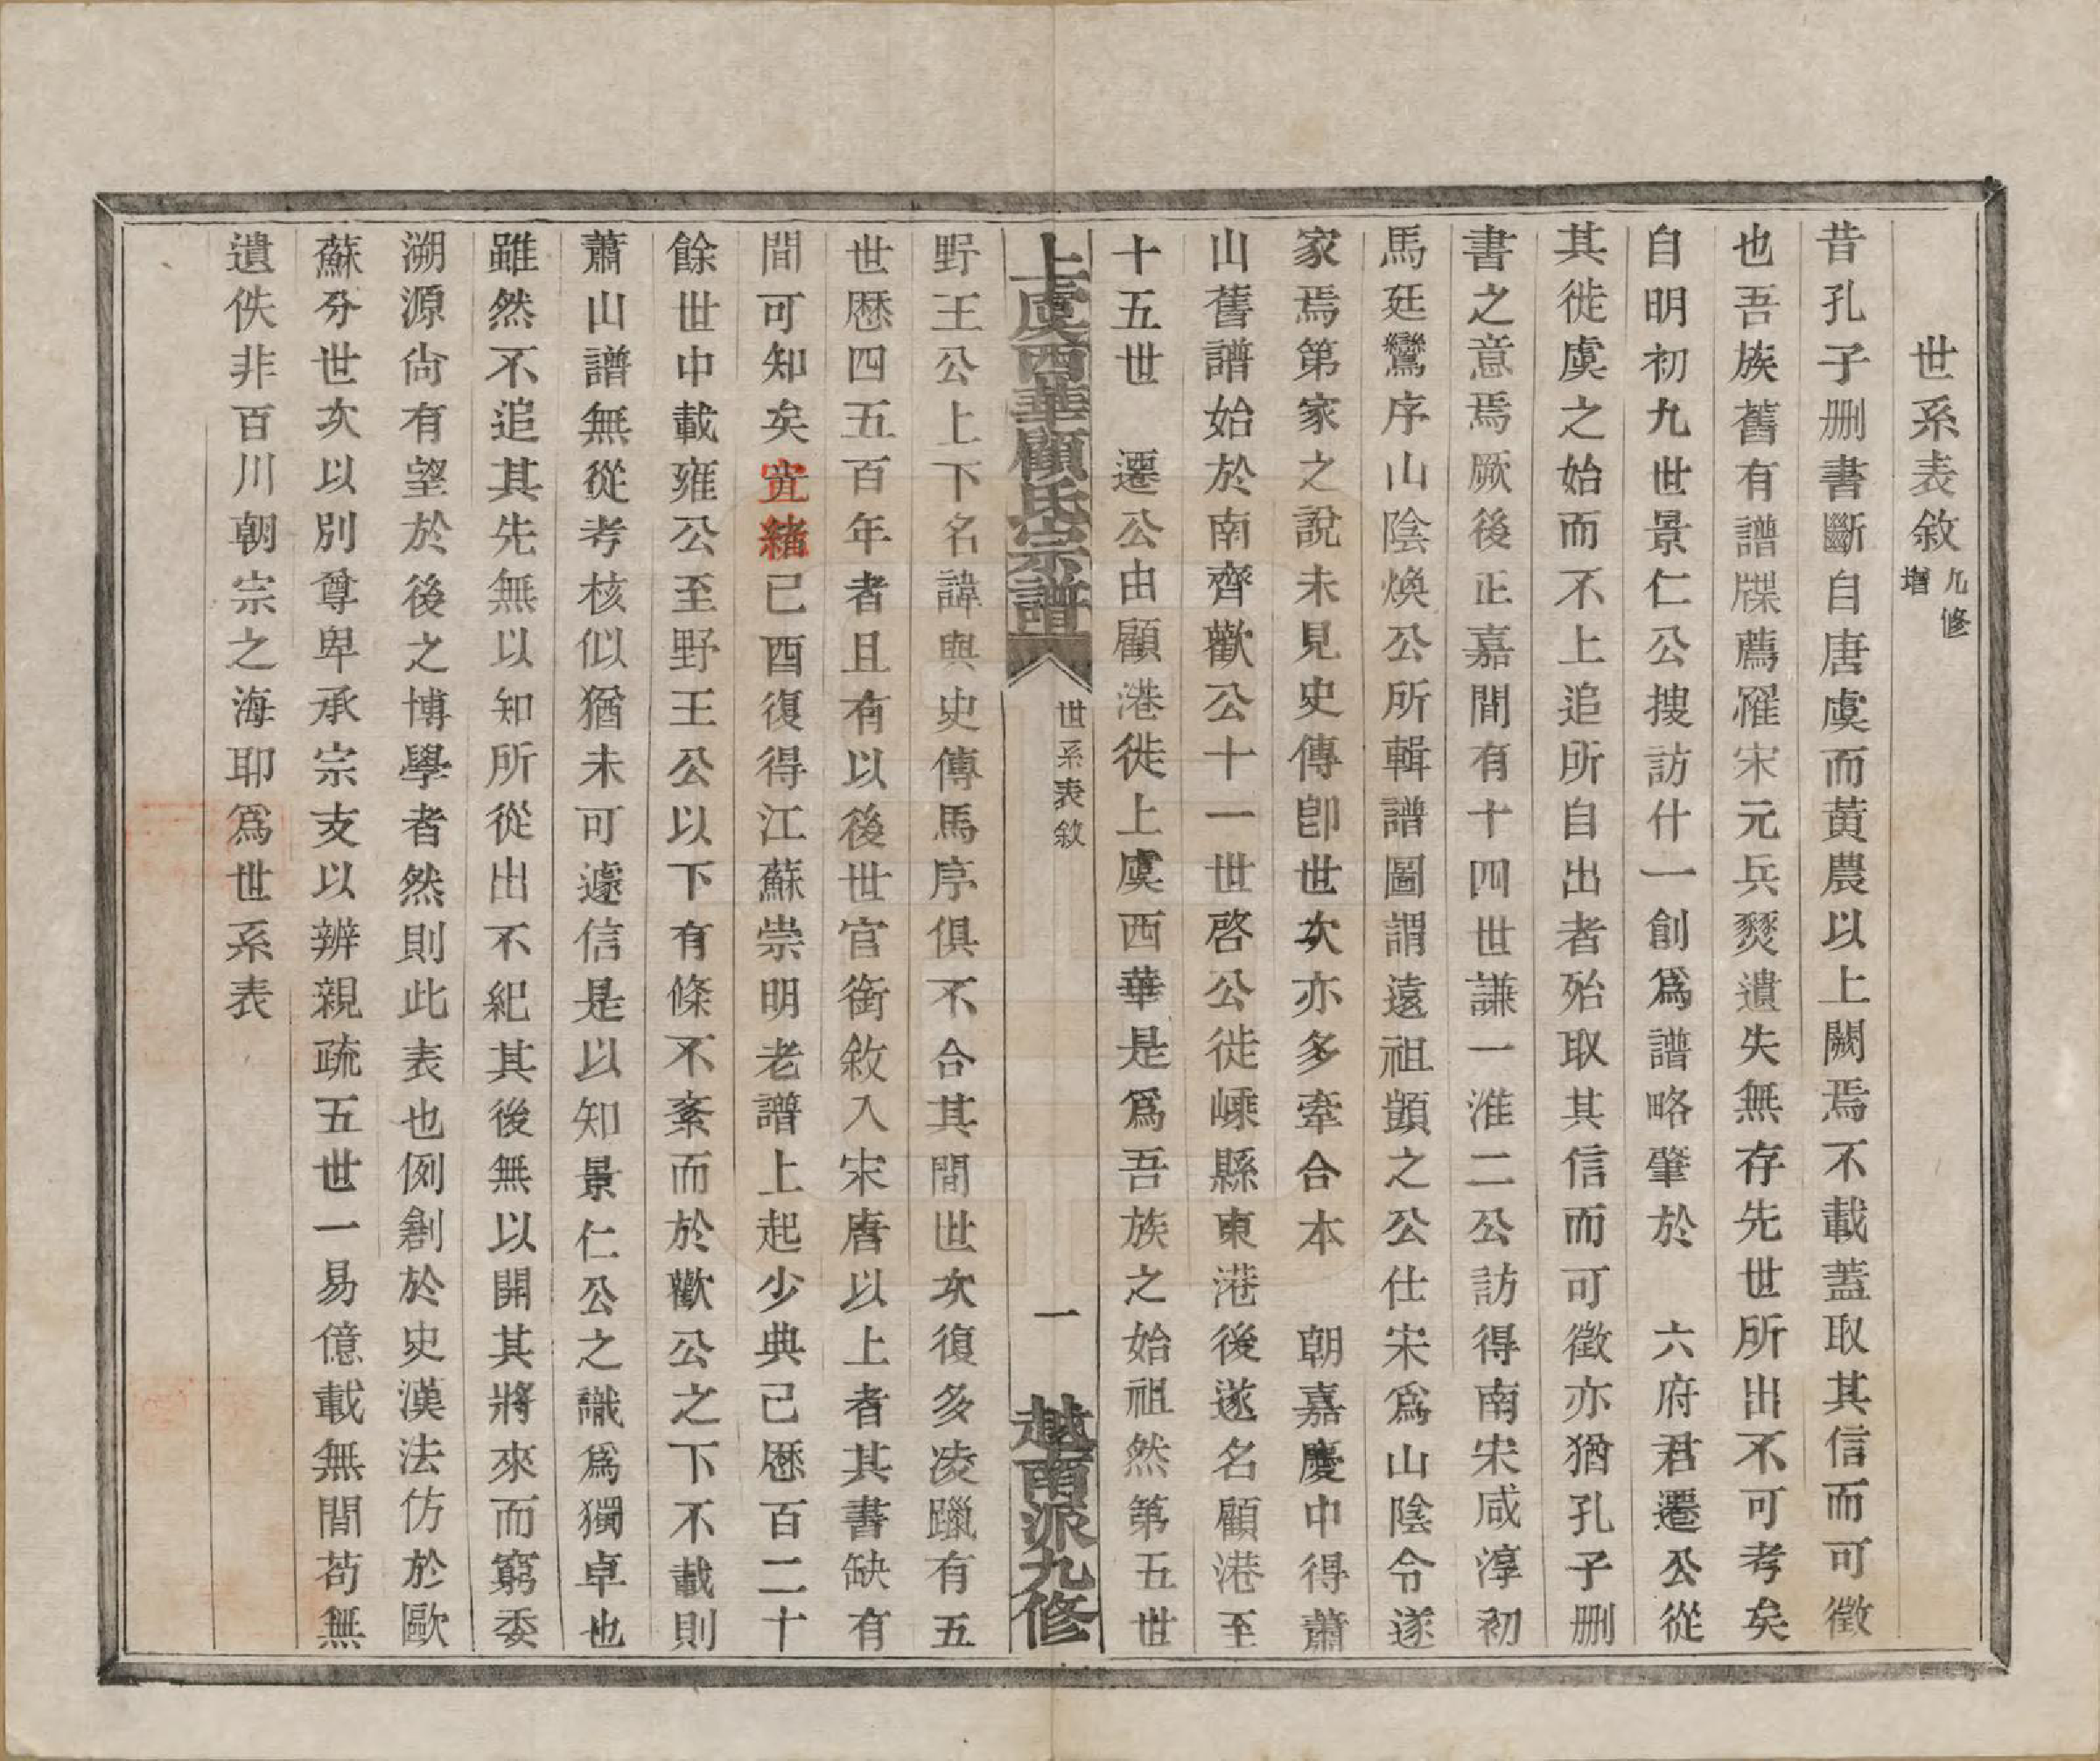 世系表敘 九修增
昔孔子删書斷自唐虞而黃農以上闕焉不載蓋取其信而可徵
也吾族舊有譜牒薦罹宋元兵燹遺失無存先世所出不可考矣
自明初九世景仁公搜訪什一創爲譜略肇於　六府君遷公從
其徙虞之始而不上追所自出者殆取其信而可徵亦猶孔子删
書之意焉厥後正嘉間有十四世謙一淮二公訪得南宋咸淳初
馬廷鸞序山陰煥公所輯譜圖謂遠祖顗之公仕宋爲山陰令遂
家焉第家之說未見史傳卽世次亦多牽合本　朝嘉慶中得蕭
山舊譜始於南齊歡公十一世啓公徙嵊縣東港後遂名顧港至
十五世　遷公由顧港徙上虞西華是爲吾族之始祖然第五世
上虞西華顧氏宗譜
世系表敘
一
越南派九修
野王公上下名諱與史傳馬序俱不合其間世次復多凌躐有五
世歴四五百年者且有以後世官銜敘入宋唐以上者其書缺有
間可知矣
己酉復得江蘇崇明老譜上起少典已歴百二十
餘世中載雍公至野王公以下有條不紊而於歡公之下不載則
蕭山譜無從考核似猶未可遽信是以知景仁公之識爲獨卓也
雖然不追其先無以知所從出不紀其後無以開其將來而窮委
溯源尙有望於後之博學者然則此表也例創於史漢法仿於歐
蘇分世次以別尊卑承宗支以辨親疏五世一易億載無間茍無
遺佚非百川朝宗之海耶爲世系表